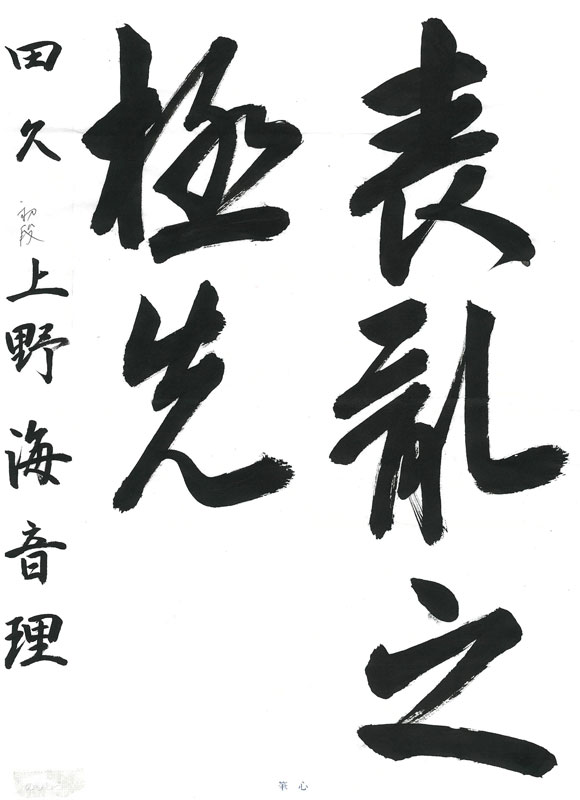 喪亂之
極先
田久 初段 上野海音理
筆心